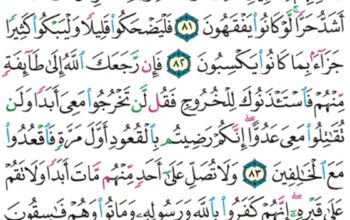 أَشَدُّ حَرًّا لَّوْ كَانُوا۟ يَفْقَهُونَ ٨١ فَلْيَضْحَكُوا۟ قَلِيلًا وَلْيَبْكُوا۟ كَثِيرًا
جَزَآءًۢ بِمَا كَانُوا۟ يَكْسِبُونَ ٨٢ فَإِن رَّجَعَكَ ٱللَّهُ إِلَىٰ طَآئِفَةٍ
مِّنْهُمْ فَٱسْتَـْٔذَنُوكَ لِلْخُرُوجِ فَقُل لَّن تَخْرُجُوا۟ مَعِىَ أَبَدًا وَلَن
تُقَـٰتِلُوا۟ مَعِىَ عَدُوًّا إِنَّكُمْ رَضِيتُم بِٱلْقُعُودِ أَوَّلَ مَرَّةٍ فَٱقْعُدُوا۟
مَعَ ٱلْخَـٰلِفِينَ ٨٣ وَلَا تُصَلِّ عَلَىٰٓ أَحَدٍ مِّنْهُم مَّاتَ أَبَدًا وَلَا تَقُمْ
عَلَىٰ قَبْرِهِۦٓ إِنَّهُمْ كَفَرُوا۟ بِٱللَّهِ وَرَسُولِهِۦ وَمَاتُوا۟ وَهُمْ فَـٰسِقُونَ